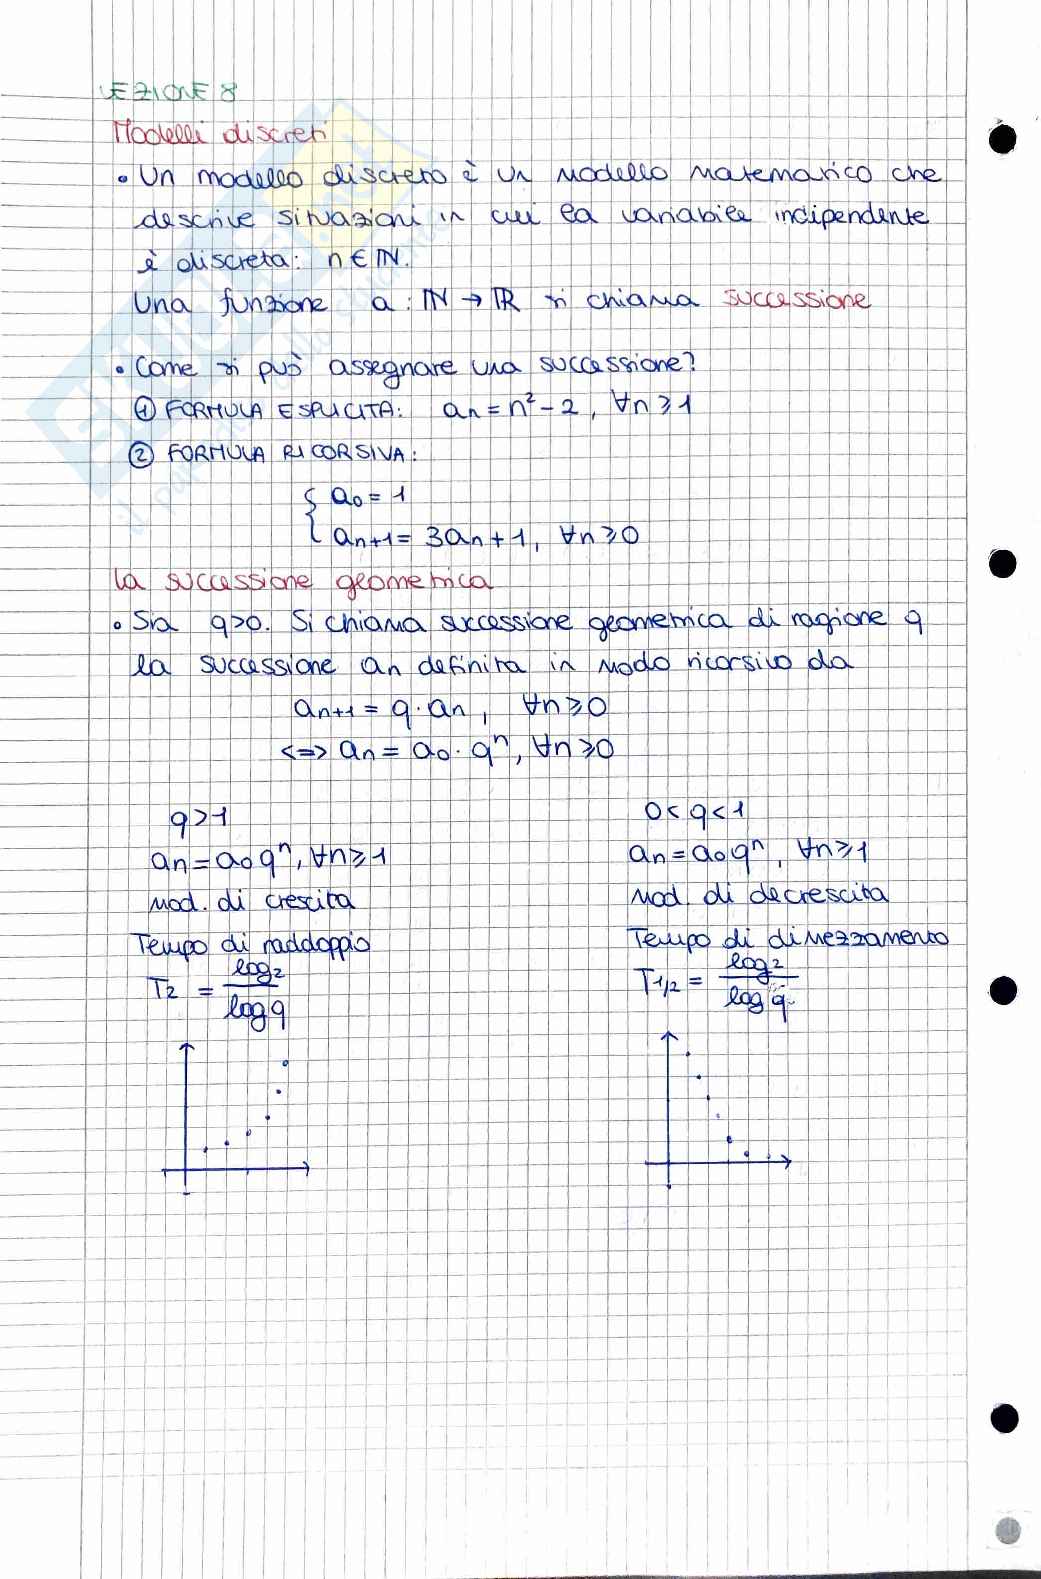 LEZIONE 8
Modelli discreti
• Un modello discreto è un modello matematico che
descrive situazioni in cui la variabile indipendente
è discreta: n ∈ ℕ.
Una funzione a : ℕ → ℝ si chiama successione
• Come si può assegnare una successione?
① FORMULA ESPLICITA: aₙ = n² - 2, ∀n ≥ 1
② FORMULA RICORSIVA:
{ a₀ = 1
aₙ₊₁ = 3aₙ + 1, ∀n ≥ 0
La successione geometrica
• Sia q>0. Si chiama successione geometrica di ragione q
la successione aₙ definita in modo ricorsivo da
aₙ₊₁ = q · aₙ, ∀n ≥ 0
<=> aₙ = a₀ · qⁿ, ∀n ≥ 0
q > 1
aₙ = a₀ qⁿ, ∀n ≥ 1
mod. di crescita
Tempo di raddoppio
T₂ = log2 / log q
0 < q < 1
aₙ = a₀ qⁿ, ∀n ≥ 1
mod. di decrescita
Tempo di dimezzamento
T1/2 = log2 / log q